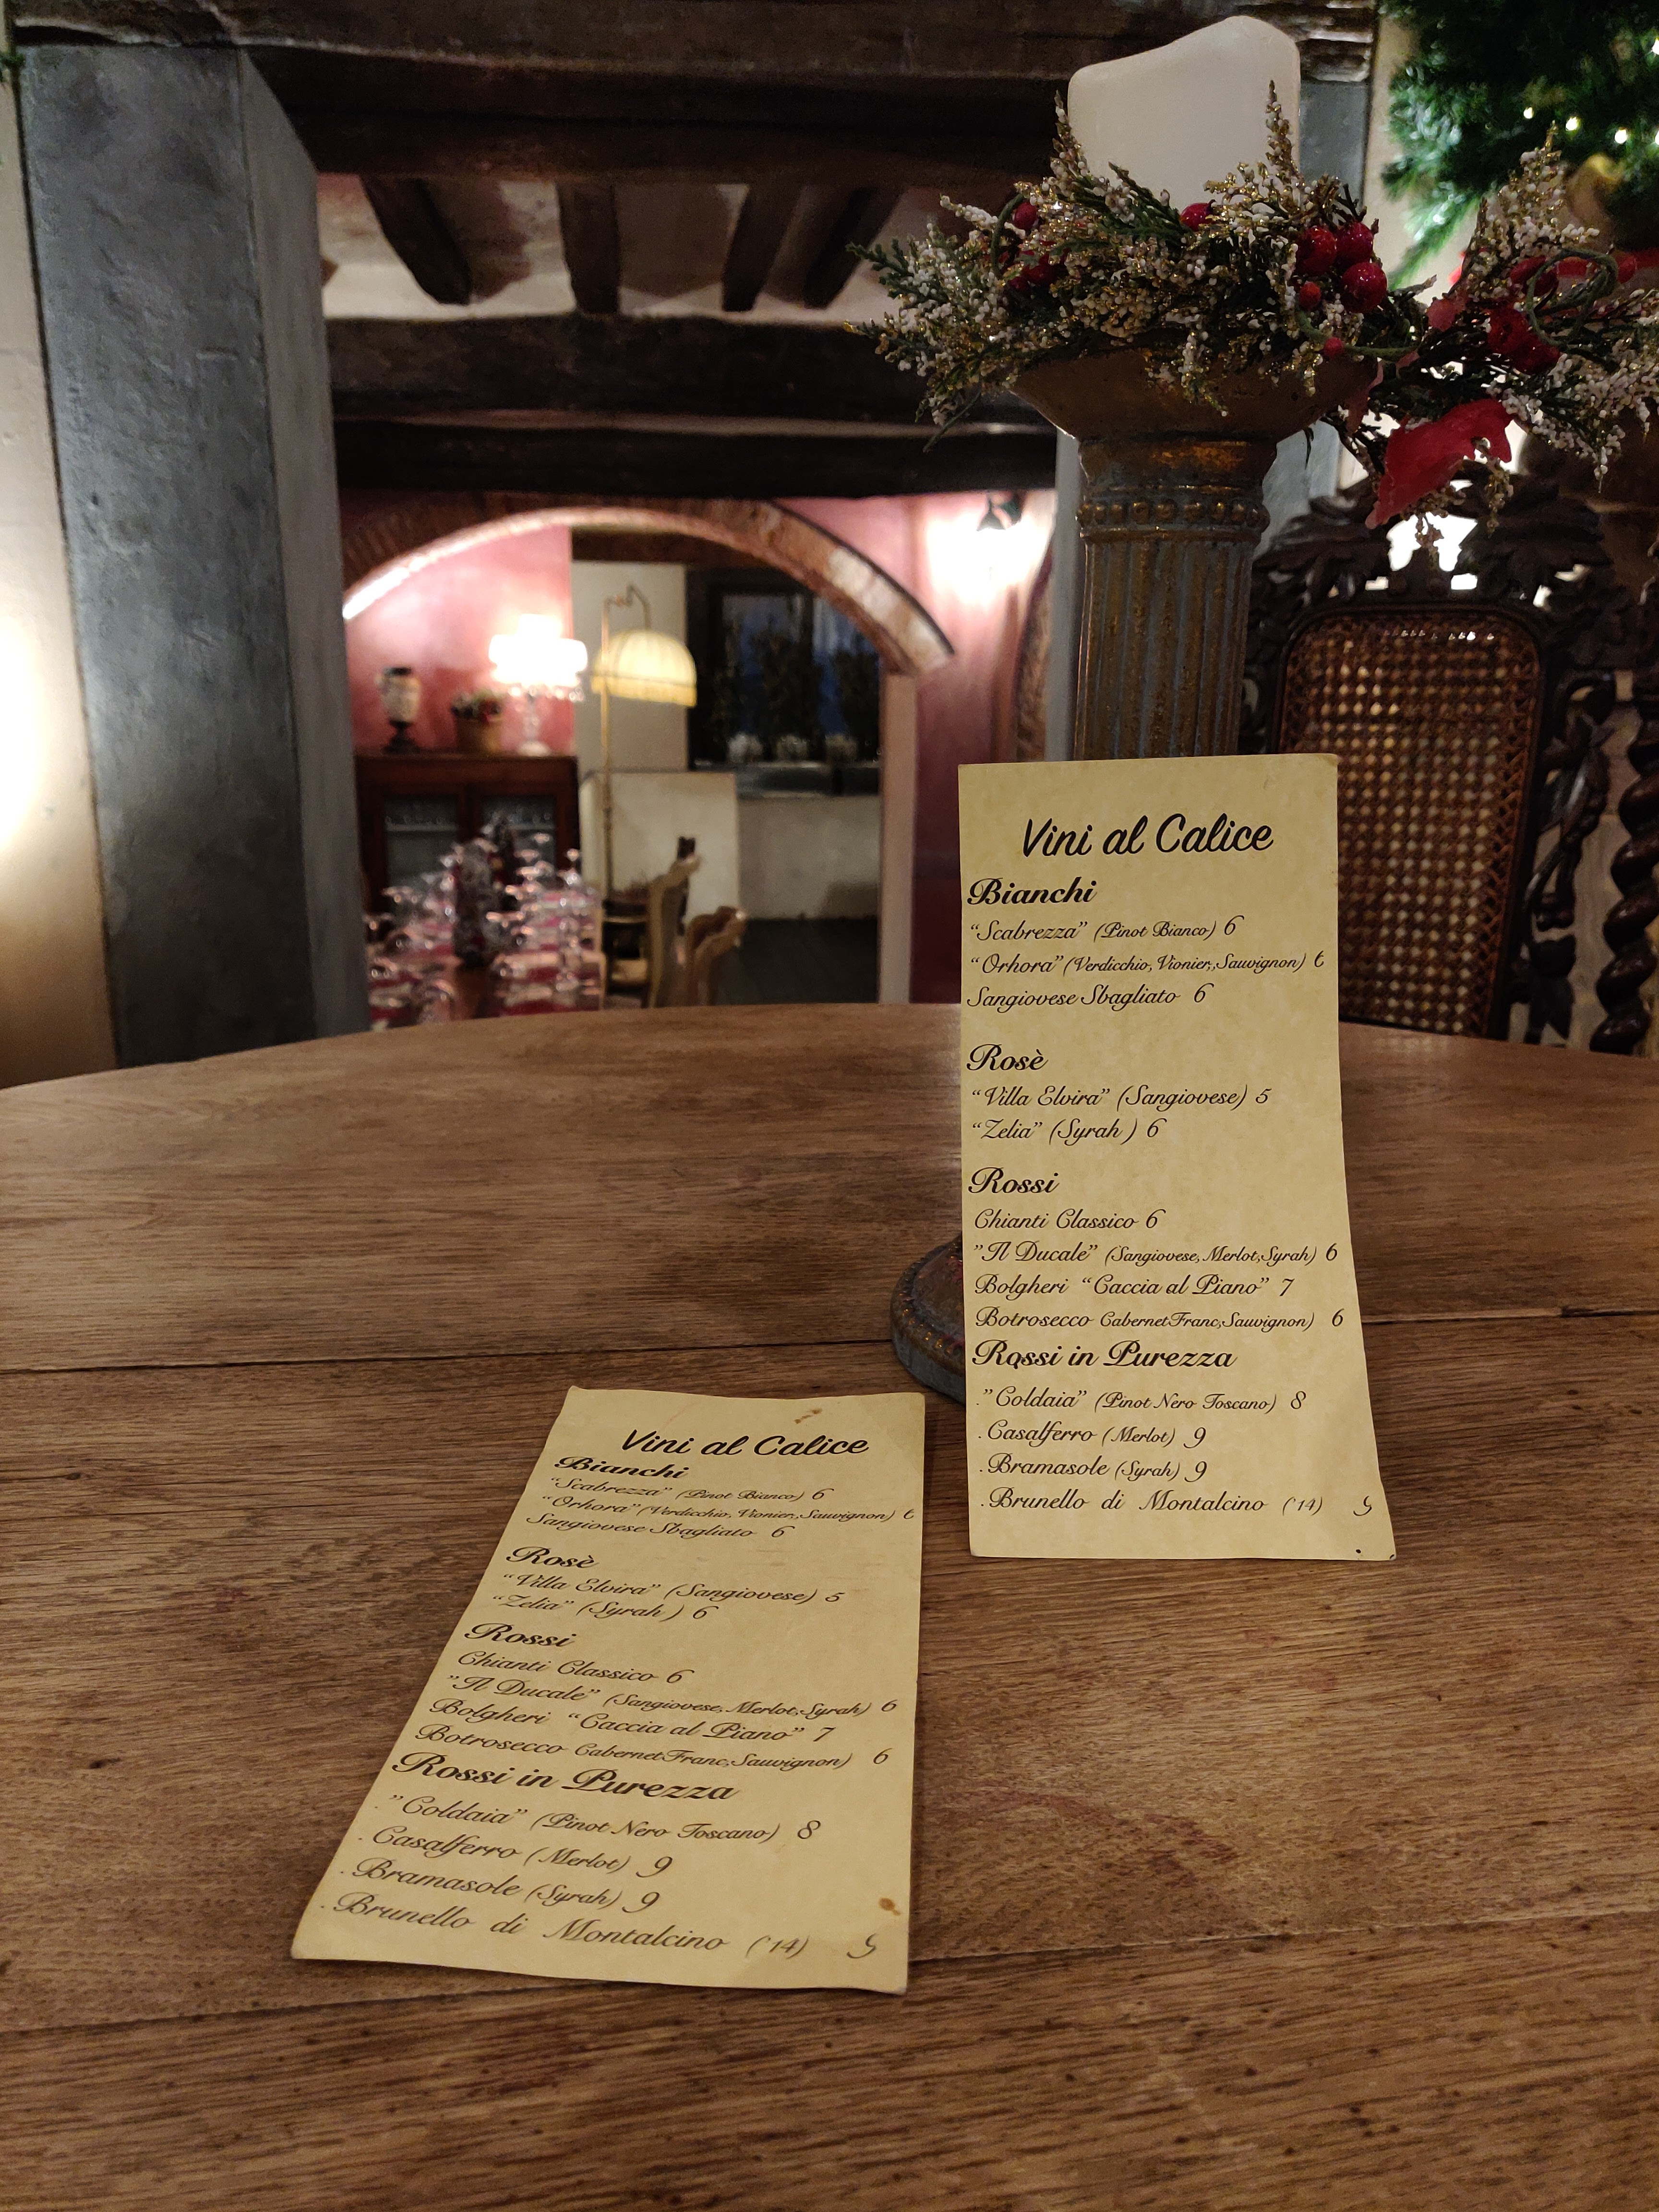 Vini al Calice
Bianchi
“Scabrezza” (Pinot Bianco) 6
“Orhora” (Verdicchio, Vionier,,Sauvignon) 6
Sangiovese Sbagliato 6
Rosè
“Villa Elvira” (Sangiovese) 5
“Zelia” (Syrah ) 6
Rossi
Chianti Classico 6
”Il Ducale” (Sangiovese, Merlot,Syrah) 6
Bolgheri “Caccia al Piano” 7
Botrosecco Cabernet Franc,Sauvignon) 6
Rossi in Purezza
.”Coldaia” (Pinot Nero Toscano) 8
.Casalferro (Merlot) 9
.Bramasole (Syrah) 9
.Brunello di Montalcino (’14)
Vini al Calice
Bianchi
“Scabrezza” (Pinot Bianco) 6
“Orhora” (Verdicchio, Vionier,,Sauvignon) 6
Sangiovese Sbagliato 6
Rosè
“Villa Elvira” (Sangiovese) 5
“Zelia” (Syrah ) 6
Rossi
Chianti Classico 6
”Il Ducale” (Sangiovese, Merlot,Syrah) 6
Bolgheri “Caccia al Piano” 7
Botrosecco Cabernet Franc,Sauvignon) 6
Rossi in Purezza
.”Coldaia” (Pinot Nero Toscano) 8
.Casalferro (Merlot) 9
.Bramasole (Syrah) 9
.Brunello di Montalcino (’14)